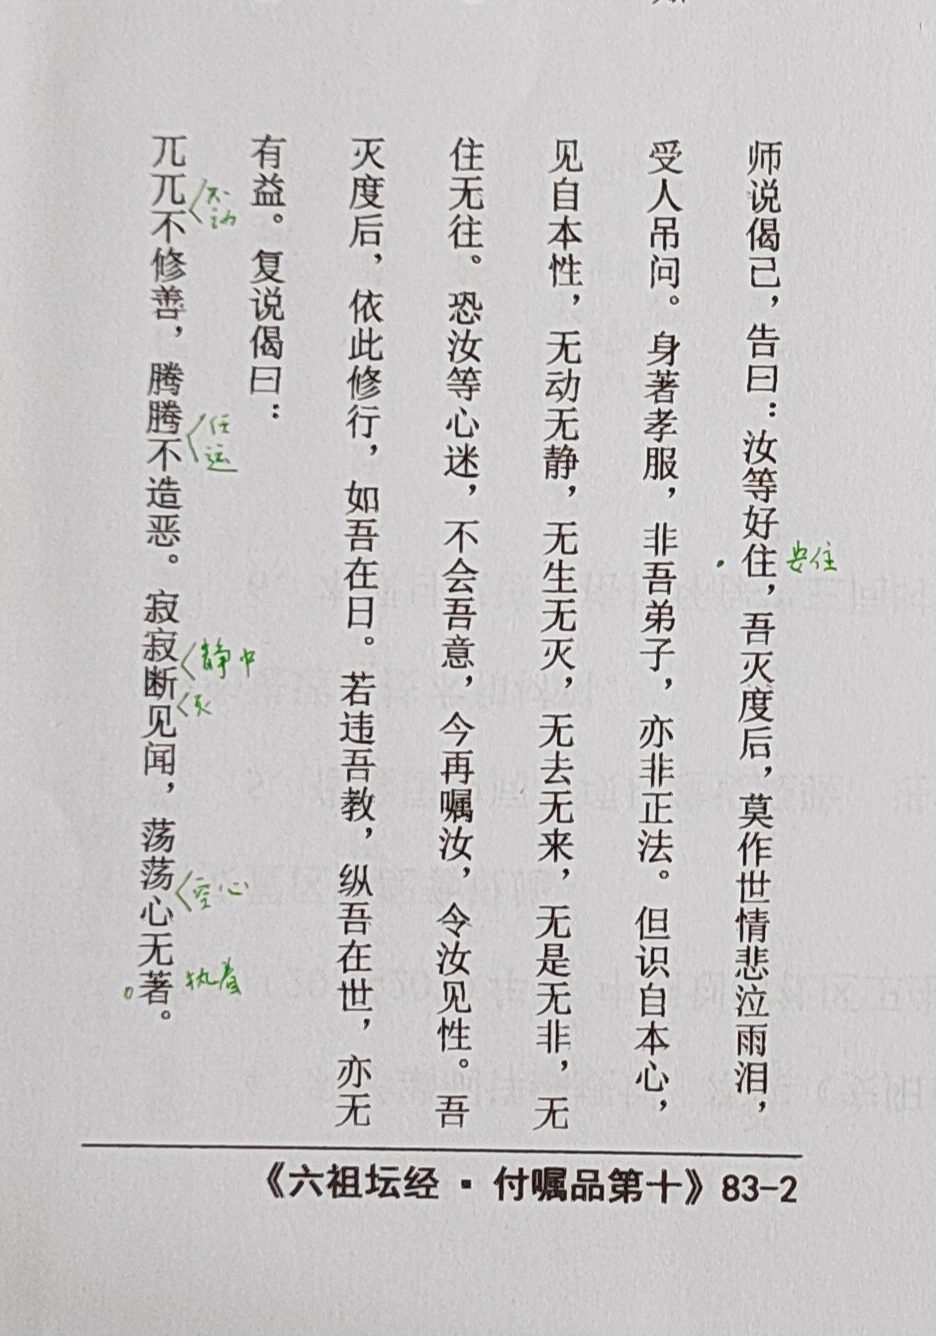 师说偈已，告曰：汝等好住，吾灭度后，莫作世情悲泣雨泪，
安住
受人吊问。身著孝服，非吾弟子，亦非正法。但识自本心，
见自本性，无动无静，无生无灭，无去无来，无是无非，无
住无往。恐汝等心迷，不会吾意，今再嘱汝，令汝见性。吾
灭度后，依此修行，如吾在日。若违吾教，纵吾在世，亦无
有益。复说偈曰：
兀兀不修善，腾腾不造恶。寂寂断见闻，荡荡心无著。
不动
任运
静中
空心
执着
《六祖坛经·付嘱品第十》83-2